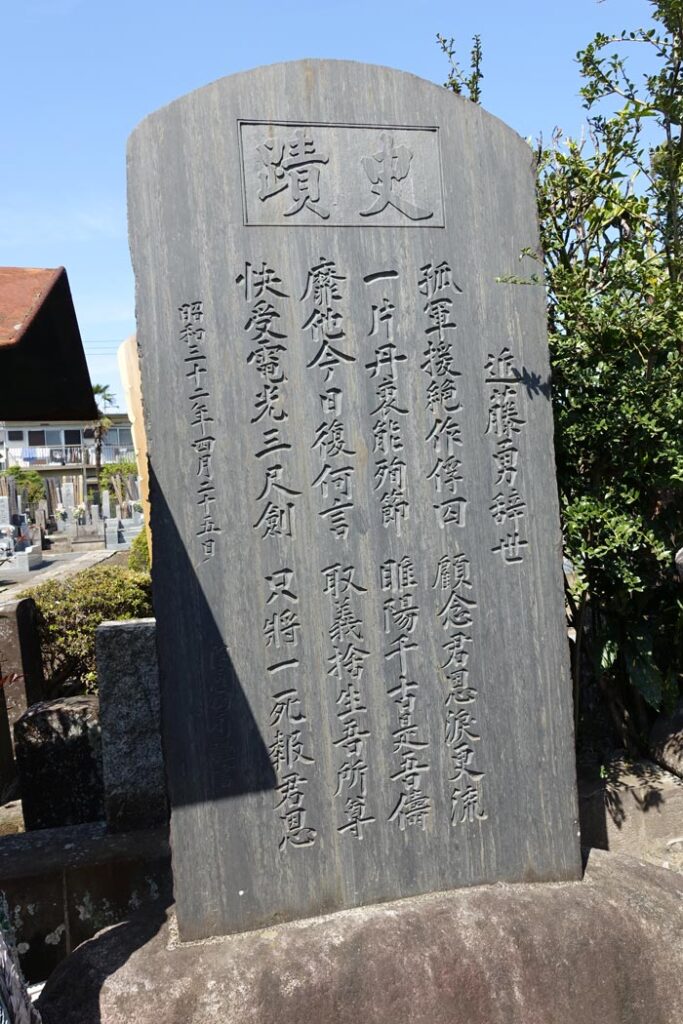 史蹟
近藤勇辞世
孤軍援絶作俘囚　顧念君恩涙更流
一片丹衷能殉節　睢陽千古是吾儔
靡他今日復何言　取義捨生吾所尊
快受電光三尺劍　只將一死報君恩
昭和三十二年四月二十五日